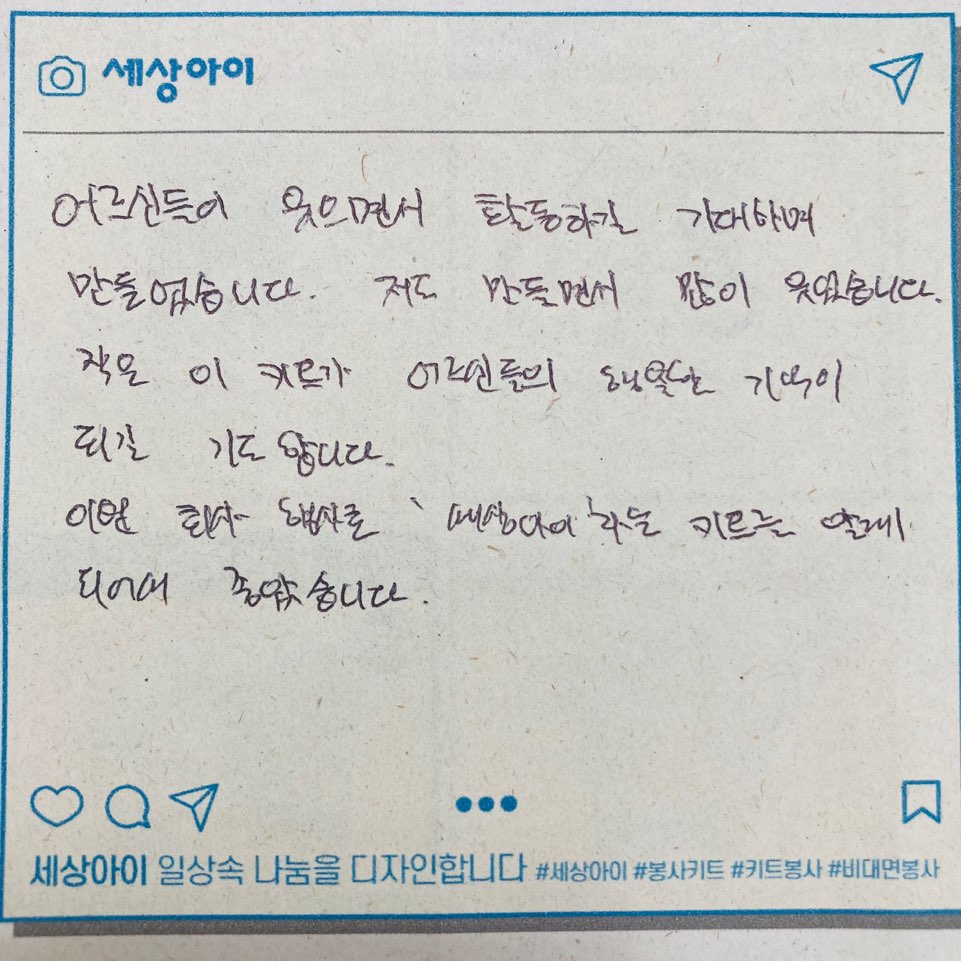 세상아이
어르신들이 웃으면서 활동하길 기대하며
만들었습니다. 저도 만들면서 많이 웃었습니다.
작은 이 키트가 어르신들의 행복한 기억이
되길 기도합니다.
이번 회사 행사로 '세상아이'라는 키트를 알게
되어서 좋았습니다.
세상아이 일상속 나눔을 디자인합니다 #세상아이 #봉사키트 #키트봉사 #비대면봉사